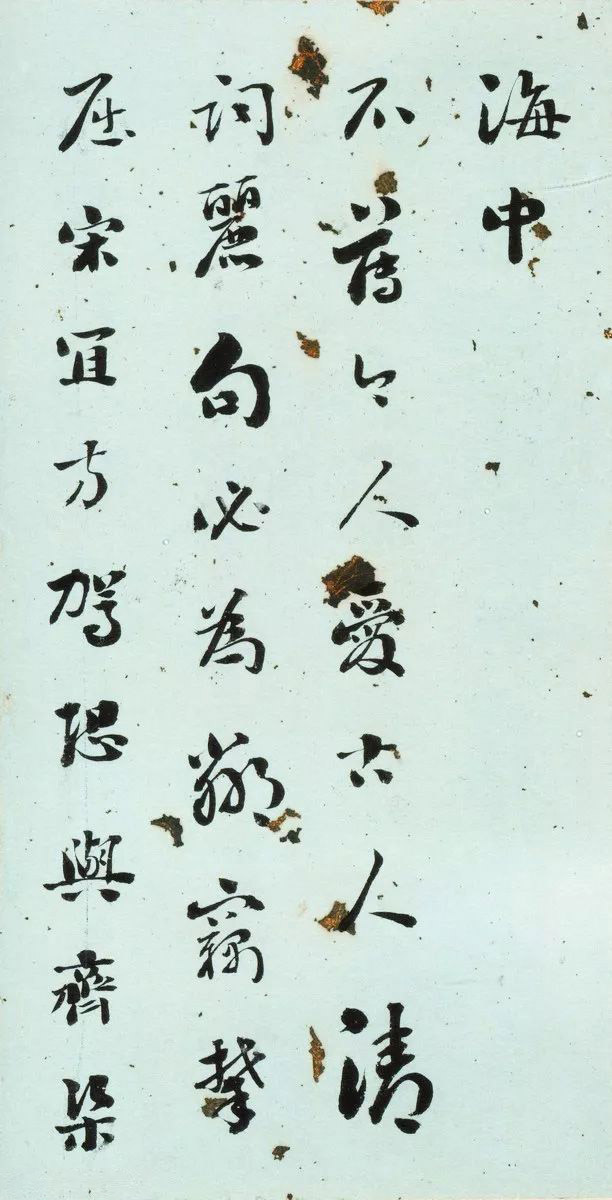 海中
不薄今人愛古人清
詞麗句必為鄰竊攀
屈宋宜方駕恐與齊梁